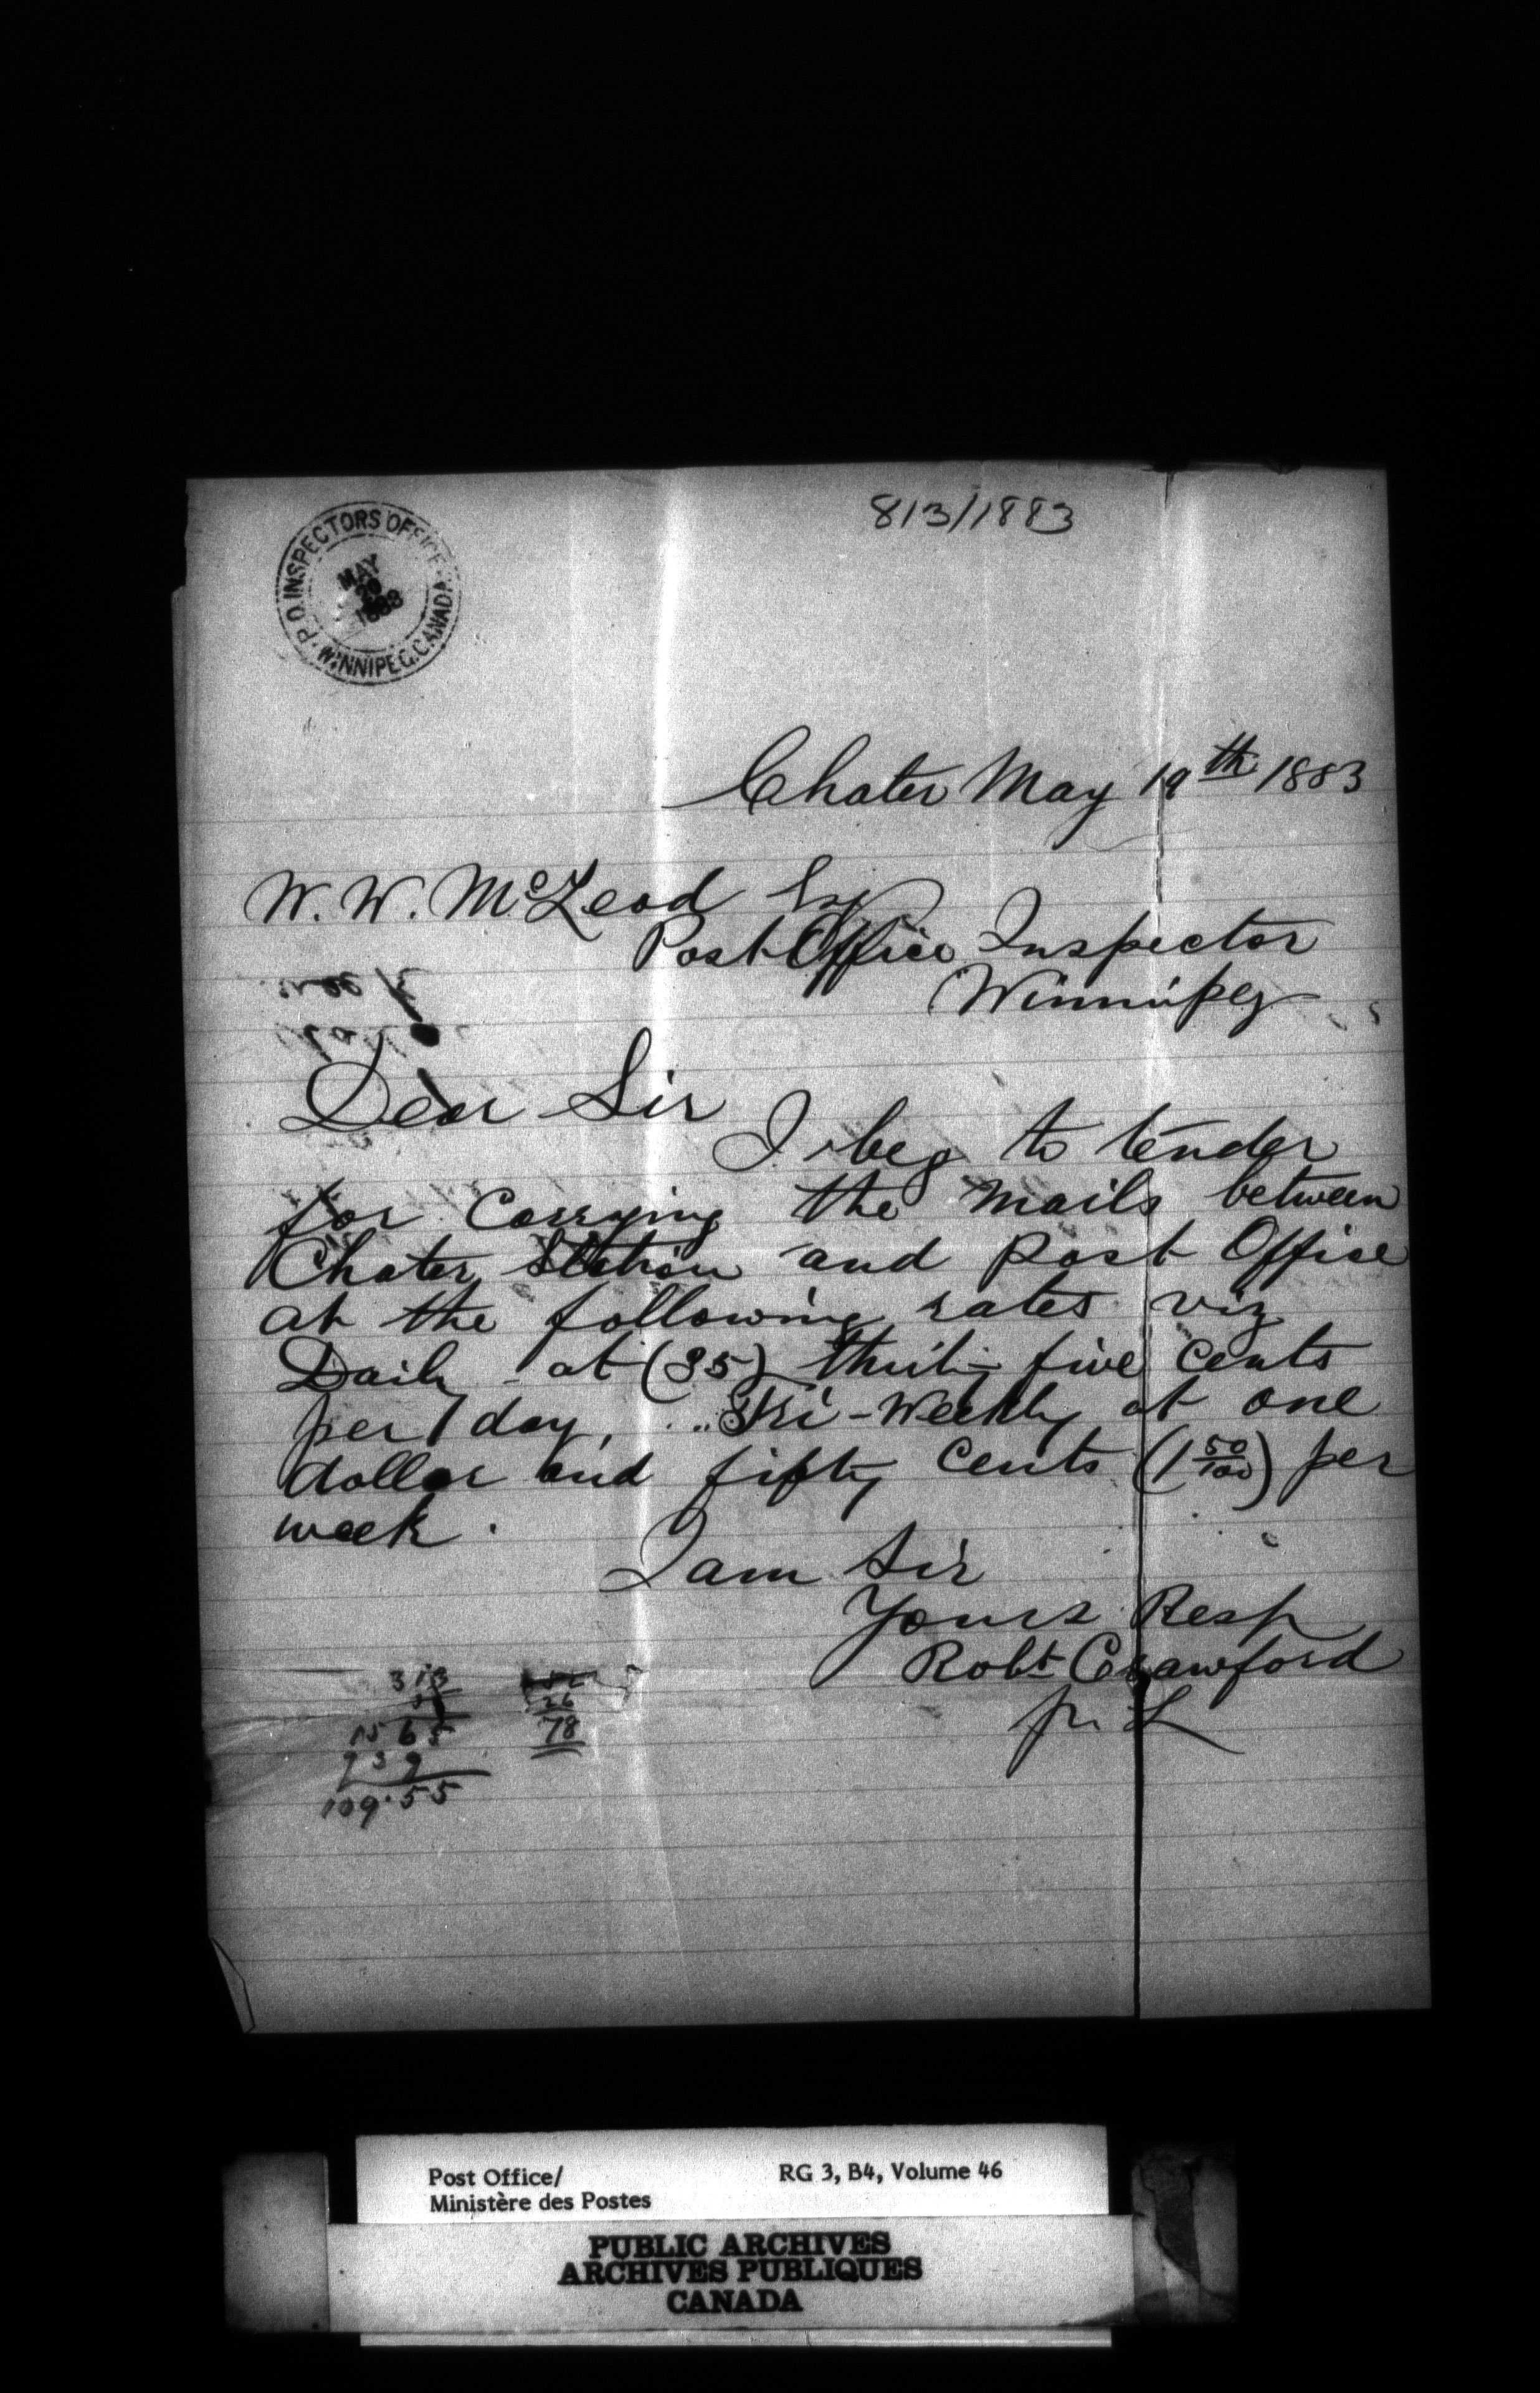 813/1883
P.O. INSPECTORS OFFICE
MAY
20
1883
WINNIPEG. CANADA
Chater May 19th 1883
W. W. McLeod Esq
Post Office Inspector
Winnipeg
Dear Sir
I beg to tender
for Carrying the mails between
Chater Station and Post Office
at the following rates viz
Daily at (35) thirty five cents
per day, Tri-Weekly at one
dollar and fifty cents (1 50/100) per
week.
I am Sir
Yours Resp
Robt Crawford
pr. L
313
1565
939
109.55
52
26
78
Post Office/
Ministère des Postes
RG 3, B4, Volume 46
PUBLIC ARCHIVES
ARCHIVES PUBLIQUES
CANADA